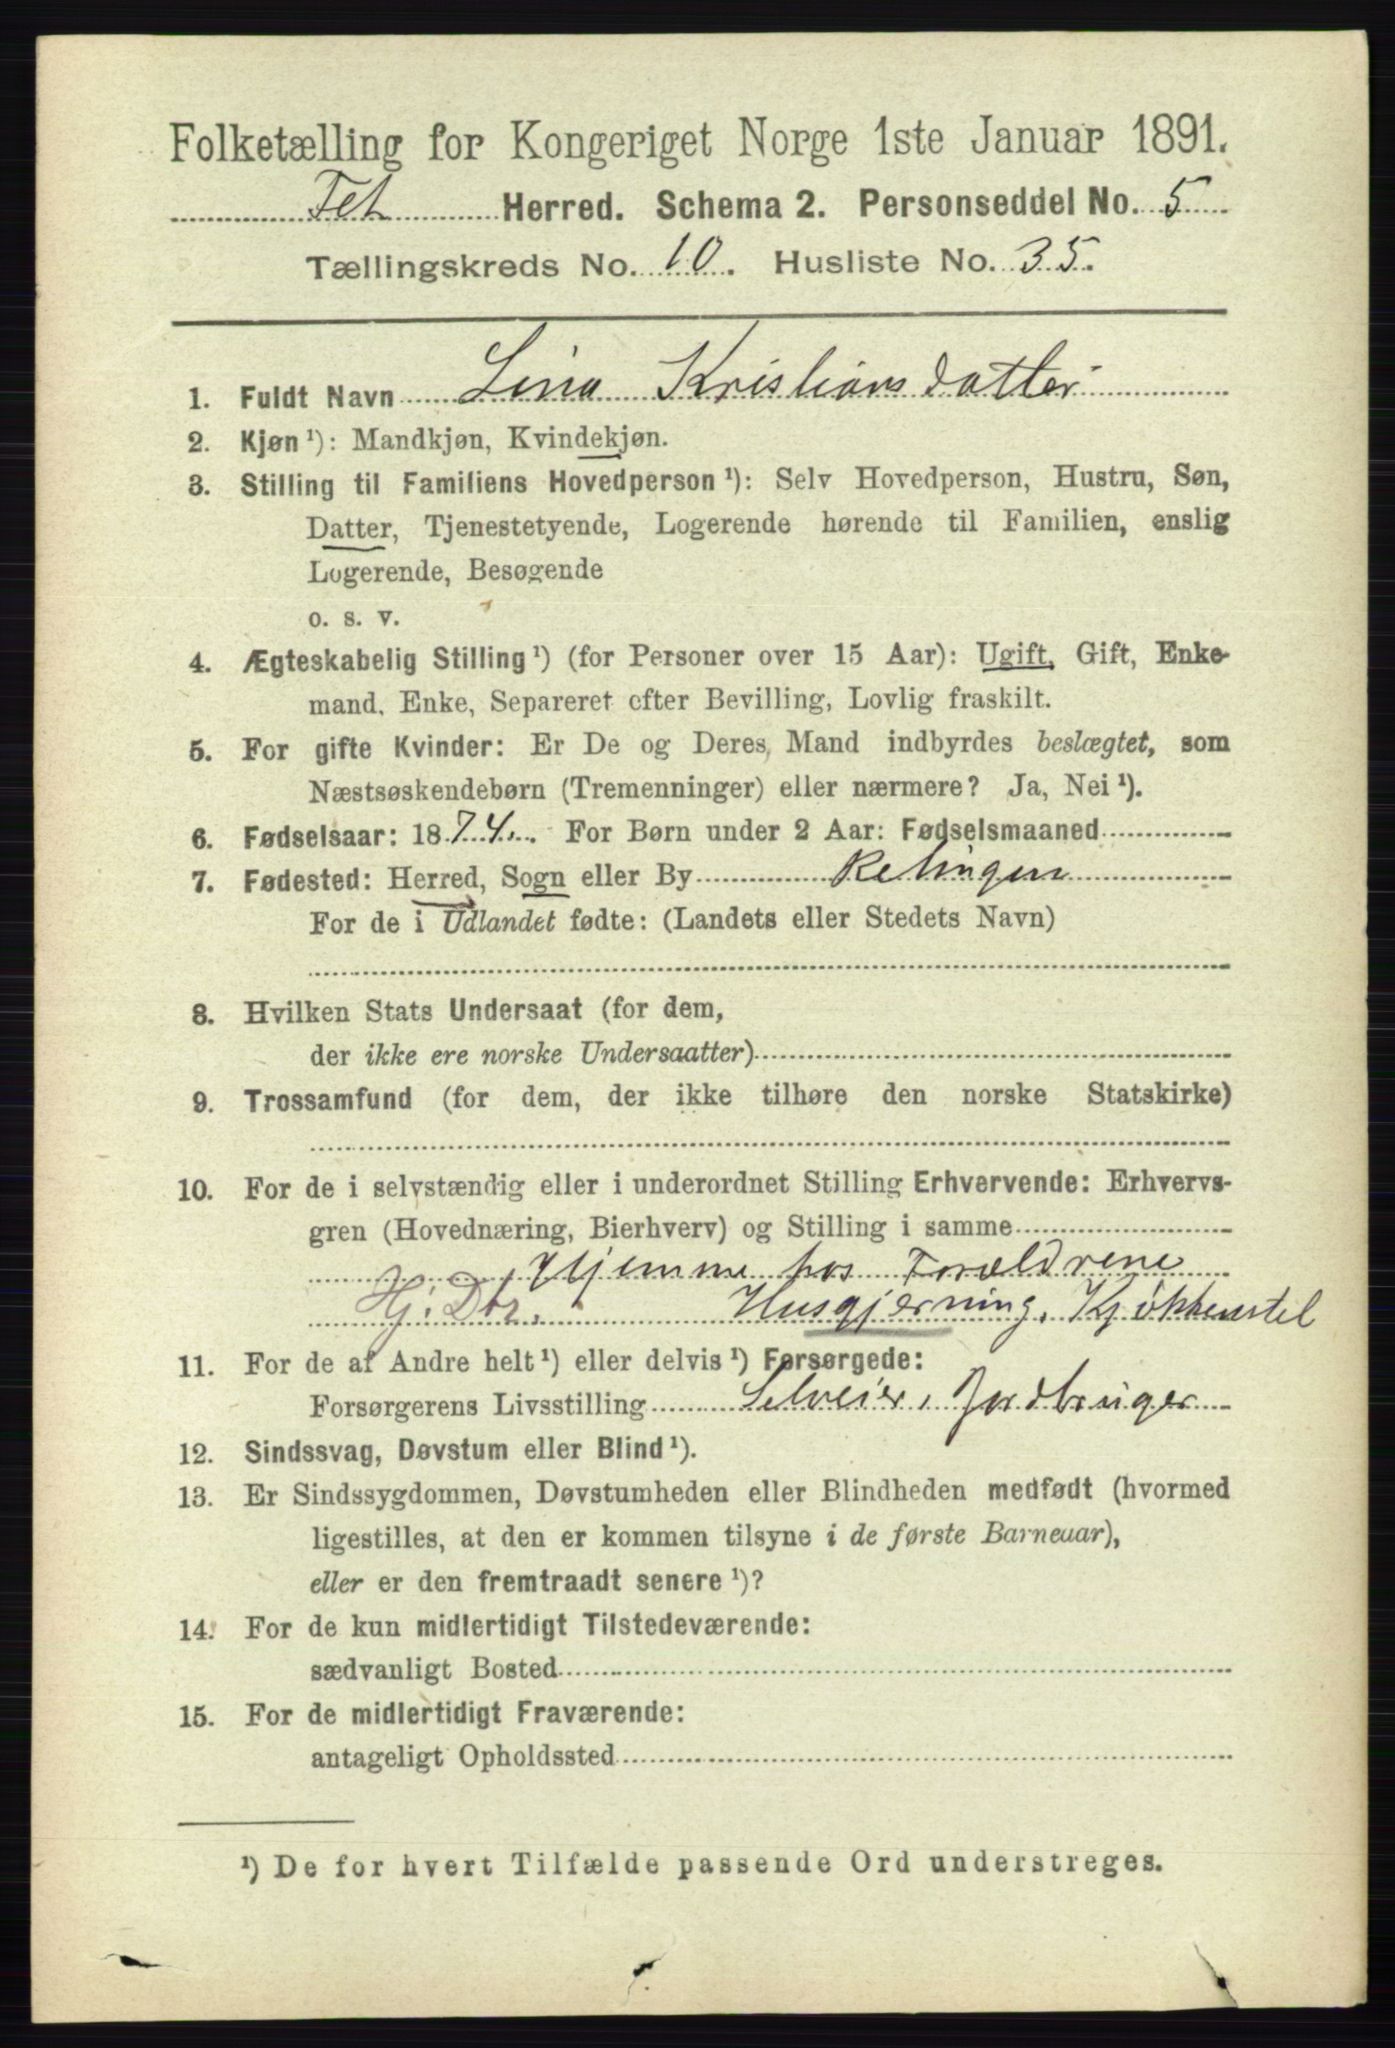 Folketælling for Kongeriget Norge 1ste Januar 1891.
Fet Herred. Schema 2. Personseddel No. 5
Tællingskreds No. 10. Husliste No. 35.
1. Fuldt Navn Lina Kristiansdatter
2. Kjøn ¹): Mandkjøn, Kvindekjøn.
3. Stilling til Familiens Hovedperson ¹): Selv Hovedperson, Hustru, Søn,
Datter, Tjenestetyende, Logerende hørende til Familien, enslig
Logerende, Besøgende
o. s. v.
4. Ægteskabelig Stilling ¹) (for Personer over 15 Aar): Ugift, Gift, Enke-
mand, Enke, Separeret efter Bevilling, Lovlig fraskilt.
5. For gifte Kvinder: Er De og Deres Mand indbyrdes beslægtet, som
Næstsøskendebørn (Tremenninger) eller nærmere? Ja, Nei ¹).
6. Fødselsaar: 1874. For Børn under 2 Aar: Fødselsmaaned
7. Fødested: Herred, Sogn eller By Relingen
For de i Udlandet fødte: (Landets eller Stedets Navn)
8. Hvilken Stats Undersaat (for dem,
der ikke ere norske Undersaatter)
9. Trossamfund (for dem, der ikke tilhøre den norske Statskirke)
10. For de i selvstændig eller i underordnet Stilling Erhvervende: Erhvervs-
gren (Hovednæring, Bierhverv) og Stilling i samme
Hjemme hos Forældrene
Hj. Dtr. Husgjerning, Kjøkkenstel
11. For de af Andre helt ¹) eller delvis ¹) Forsørgede:
Forsørgerens Livsstilling Selveier, Jordbruger
12. Sindssvag, Døvstum eller Blind ¹).
13. Er Sindssygdommen, Døvstumheden eller Blindheden medfødt (hvormed
ligestilles, at den er kommen tilsyne i de første Barneaar),
eller er den fremtraadt senere ¹)?
14. For de kun midlertidigt Tilstedeværende:
sædvanligt Bosted
15. For de midlertidigt Fraværende:
antageligt Opholdssted
¹) De for hvert Tilfælde passende Ord understreges.